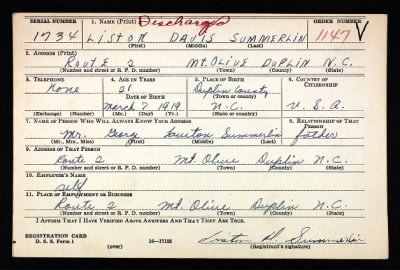 SERIAL NUMBER 1. NAME (Print) Discharged ORDER NUMBER
1734 LISTON DAVIS SUMMERLIN 1147 V
(First) (Middle) (Last)
2. ADDRESS (Print)
ROUTE 2 MT. OLIVE DUPLIN N.C.
(Number and street or R. F. D. number) (Town) (County) (State)
3. TELEPHONE 4. AGE IN YEARS 5. PLACE OF BIRTH 6. COUNTRY OF CITIZENSHIP
None 21 Duplin County
DATE OF BIRTH (Town or county)
March 7 1919 N.C. U.S.A.
(Exchange) (Number) (Mo.) (Day) (Yr.) (State or country)
7. NAME OF PERSON WHO WILL ALWAYS KNOW YOUR ADDRESS 8. RELATIONSHIP OF THAT PERSON
Mr. George Summerlin father
(Mr., Mrs., Miss) (First) (Middle) (Last)
9. ADDRESS OF THAT PERSON
Route 2 Mt Olive Duplin N.C.
(Number and street or R. F. D. number) (Town) (County) (State)
10. EMPLOYER'S NAME
self
11. PLACE OF EMPLOYMENT OR BUSINESS
Route 2 Mt Olive Duplin N.C.
(Number and street or R. F. D. number) (Town) (County) (State)
I AFFIRM THAT I HAVE VERIFIED ABOVE ANSWERS AND THAT THEY ARE TRUE.
REGISTRATION CARD
D. S. S. Form 1 (over) 16—17105 Liston D. Summerlin
(Registrant's signature)